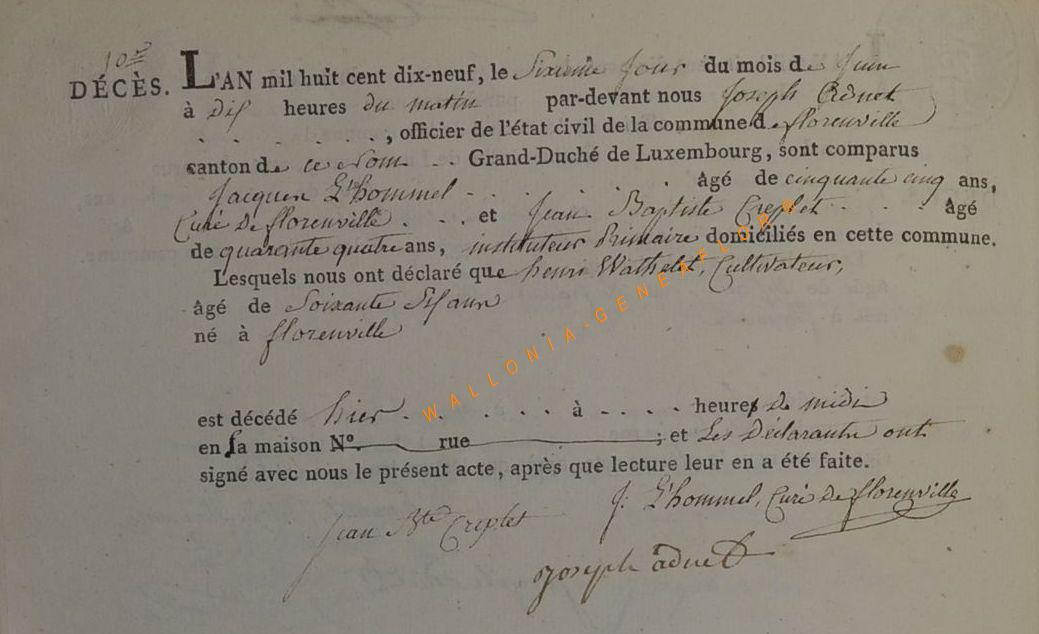 10me
DÉCÈS. L'AN mil huit cent dix-neuf, le Sixieme Jour du mois de Juin
à dix heures du matin par-devant nous Joseph Adnet
. . . . . . ., officier de l'état civil de la commune de florenville
canton de ce Nom . . Grand-Duché de Luxembourg, sont comparus
Jacques L'hommel . . . . . . . âgé de cinquante cinq ans,
Curé de florenville . . . et Jean Baptiste Creplet . . . . âgé
de quarante quatre ans, instituteur Primaire domiciliés en cette commune.
Lesquels nous ont déclaré que henri Wathelet, Cultivateur,
âgé de Soixante Six ans
né à florenville
est décédé hier . . . . . . à . . . . heures de midi
en sa maison N.º rue ; et Les Déclarants ont
signé avec nous le présent acte, après que lecture leur en a été faite.
J: L'hommel, Curé de florenville
Jean Bte Creplet
Joseph adnet
WALLONIA-GENEAFLORE